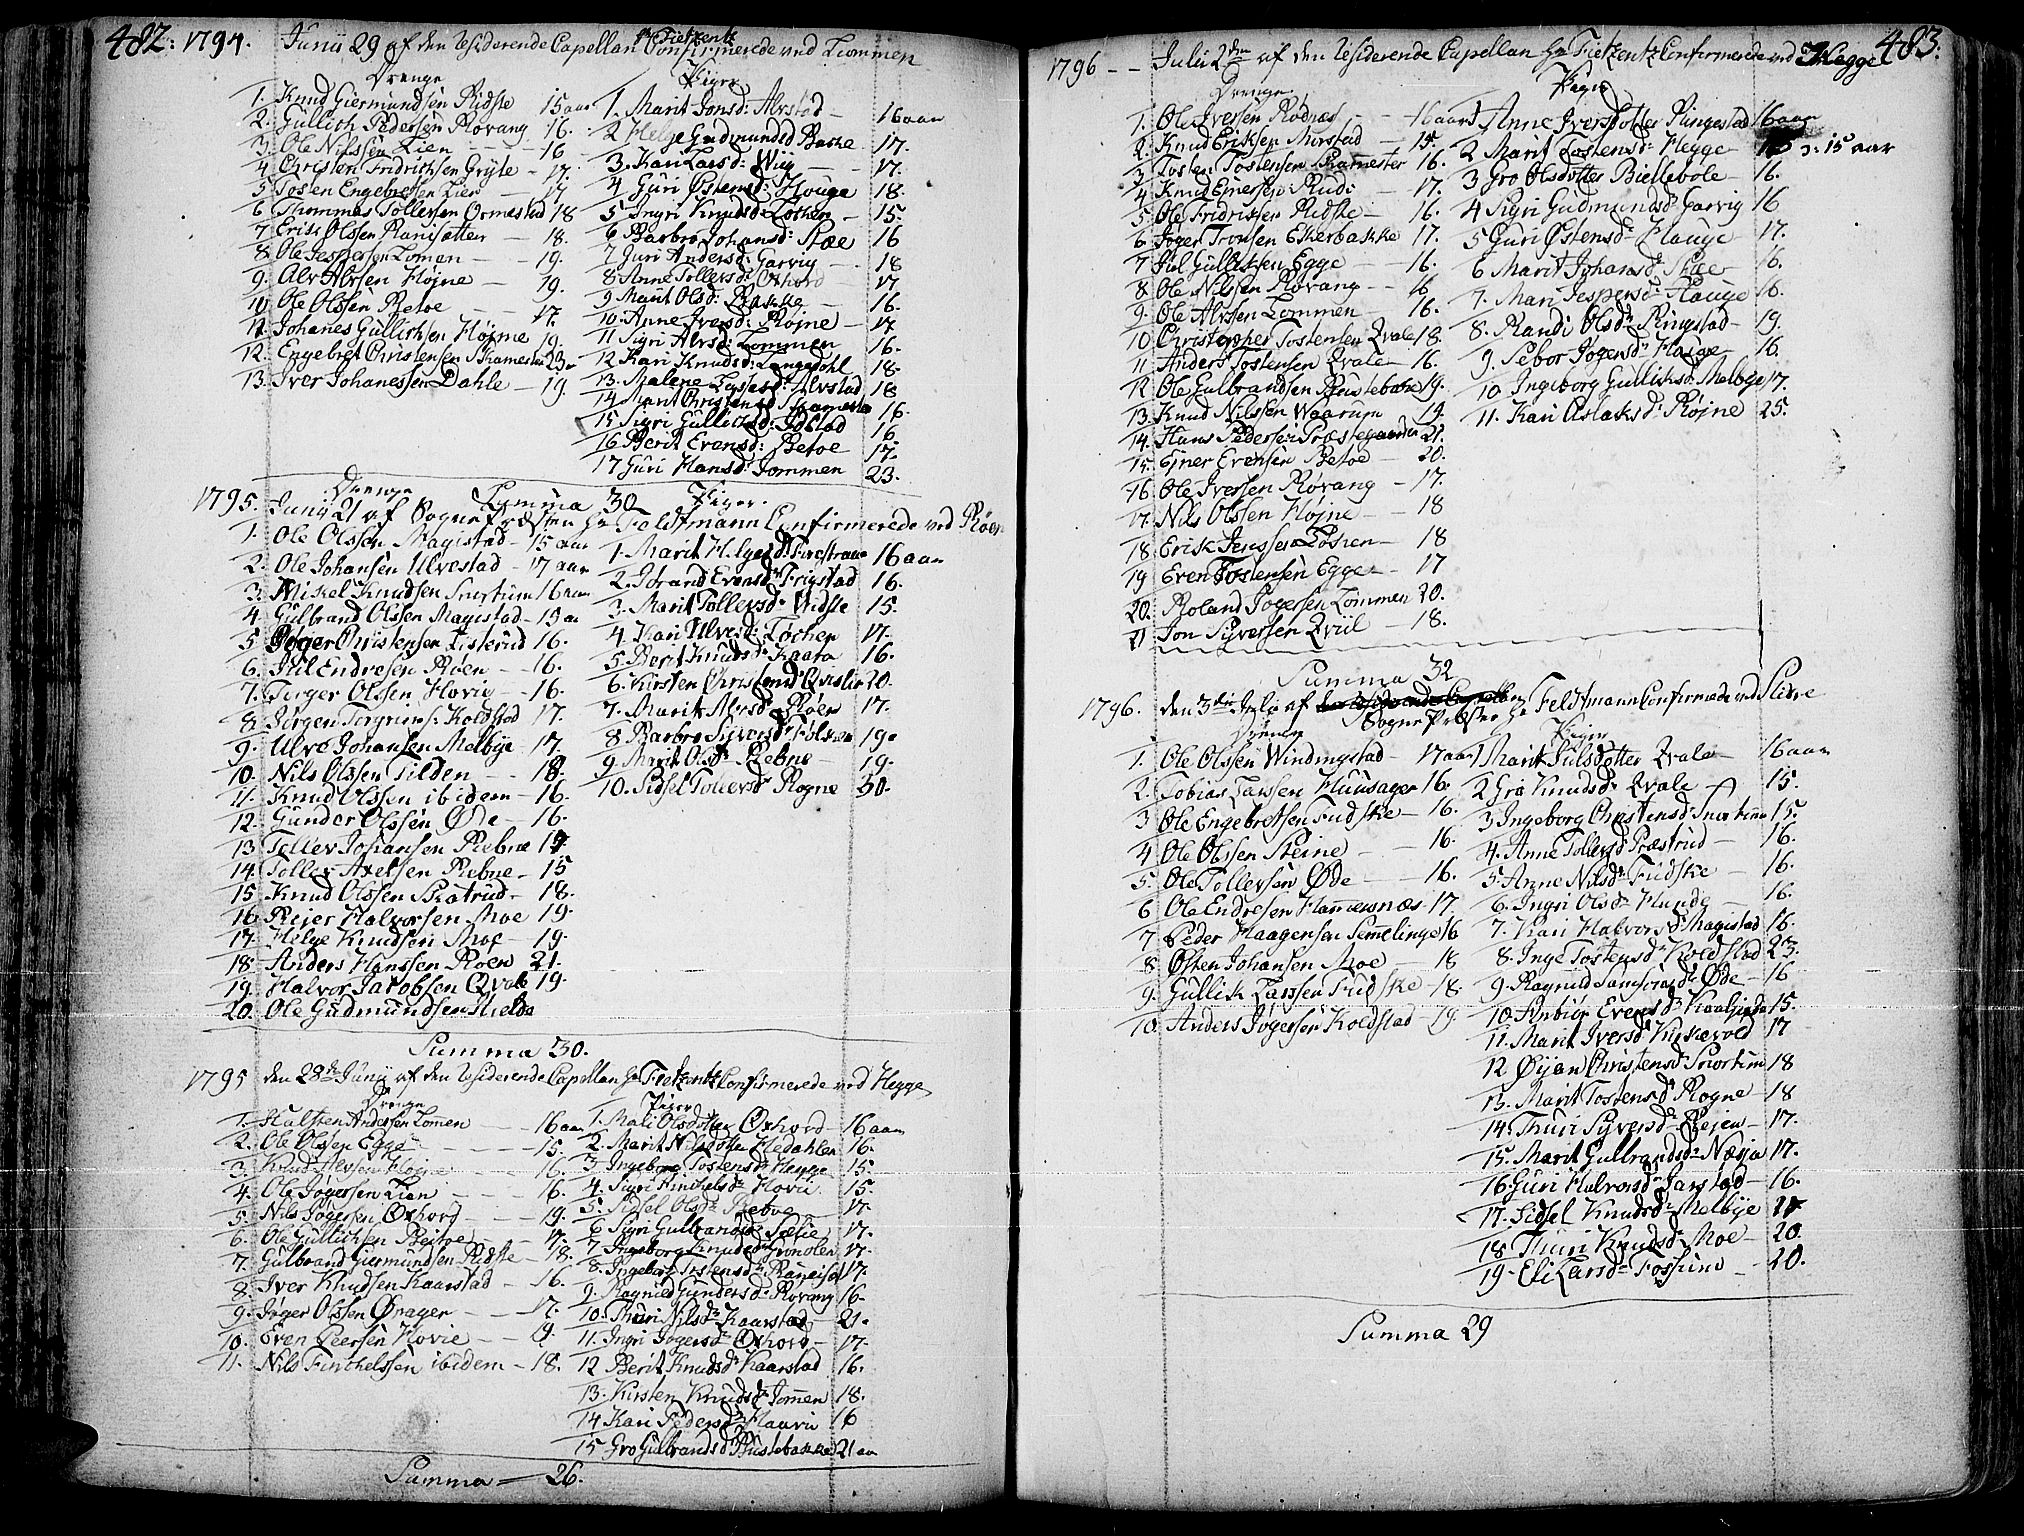 482: 1794. Junii 29 af den residerende Capellan Hr Fietzentz Confirmerede ved Lommen
Drenge
1. Knud Giermundsen Ridste 15 aar
2. Gullich Pedersen Rovang 16.
3. Ole Nilssen Lien 16
4 Christen Fridrichsen Gryte 17.
5 Tosten Engebretsen Lien 17
6 Thommas Tollefsen Ormestad 18
7 Erik Olssen Ranisatter 18.
8 Ole Jespersen Lomen 19.
9. Alv Alvsen Højne 19.
10 Ole Olssen Betoe 17.
11. Johanes Gullichsen Højme 19.
12. Engebret Christensen Skamestad 23
13. Iver Johanessen Dahle 19.
Piger
1. Marit Jonsd: Alvstad 16 aar
2 Helge Gudmundsd Bakke 17.
3. Kari Larsd: Wiig 17.
4 Guri Østensd: Houge 18.
5 Ingri Knudsd: Lothen 15.
6 Barbro Johansd: Skoe 16
7 Guri Andersd: Garvig 18
8 Anne Tollersd: Oxhord 17
9 Marit Olsd: Bakke 16.
10. Anne Iversd: Højne 17.
11 Sigri Alvsd: Lommen 16.
12 Kari Knudsd: Lengedohl 18.
13. Malene Larsd: Alvstad 18
14 Marit Christensd Skamestad 16.
15 Sigri Gullichsd: Idstad 16
16 Berit Evensd: Betoe 17.
17 Guri Hansd: Jommen 23.
Summa 30
1795. Junii 21 af SognePræsten Hr Feldtmann Confirmerede ved Røen
Drenge
1. Ole Olssen Magistad 15 aar
2. Ole Johansen Ulvestad 17 aar
3. Mikel Knudsen Snortum 16 aar
4. Gulbrand Olssen Magistad 15 aar
5 Jøger Christensen Listerud 16.
6. Juul Endresen Røen 16.
7. Torger Olssen Hovig 16.
8. Jørgen Torgrims: Koldstad 17.
9. Ulve Johansen Melbye 17.
10. Nils Olssen Tilden 18.
11. Knud Olssen ibidem 16.
12. Gunder Olssen Øde 16.
13 Toller Johansen Rebne 17
14 Toller Axelsen Rebne 15
15 Knud Olssen Skatrud 18.
16 Reier Halvorsen Moe 19.
17. Helge Knudsen Moe 19.
18. Anders Hanssen Røen 21.
19. Halvor Jacobsen Qvale 19.
20. Ole Gudmundsen Hielde
Piger.
1. Marit Helgesd: Furestrand 16 aar
2. Jorand Evensd: Frigstad 16.
3. Marit Tollersd: Widste 15.
4. Kari Ulvesd: Løchen 17.
5. Berit Knudsd: Kaara 16.
6. Kirsten Christensd: Qvislin 20.
7. Marit Alvsd: Røen 17.
8 Barbro Siversd: Folken 19.
9. Marit Olsd: Rebne 19.
10. Sidsel Tollersd: Rogne 30.
Summa 30.
1795 den 28de Junii af den residerende Capellan Hr Fietzentz Confirmerede ved Hegge
Drenge
1. Halsten Andersen Lomen 16 aar
2. Ole Olssen Egge 15.
3 Knud Alvsen Højne 16.
4. Ole Jøgersen Lien 16.
5. Nils Jøgersen Oxhord 19.
6. Ole Gullichsen Beitoe 17.
7. Gulbrand Giermundsen Ridste 18.
8. Iver Knudsen Kaarstad 16.
9. Jøger Olssen Ørager 17.
10. Even Peersen Hovie 19.
11. Nils Finchelssen ibidem 18.
Piger
1. Mali Olsdotter Oxhord 16 aar
2. Marit Nilsdotter Hedahlen 16.
3. Ingeborg Tostensd: Hegge 15.
4. Sigri Finchelsd: Hovii 15.
5. Sidsel Olsd: Betoe 17.
6 Sigri Gulbransd: Selie 17.
7 Ingeborg Knudsd: Gunolen 17.
8. Ingeborg Tostensd: Raneisat 17.
9. Ragnild Gundersd: Rovang 16.
10. Thuri Nilsd: Kaarstad 21.
11. Ingri Jogersd: Oxhord 17.
12 Berit Knudsd: Kaarstad 16.
13. Kirsten Knudsd: Jommen 18.
14 Kari Pedersd: Haavri 16
15 Gro Gulbrandsd: Rustebakke 21 aar
Summa 26.
483.
1796 - - Julii 2den af den residerende Capellan Hr Fietzentz Confirmerede ved Hegge
Drenge.
1. Ole Iverssen Rodnes 16 aar
2. Knud Eriksen Morstad 15.
3 Tosten Tostensen Skamester 16.
4 Knud Ejnersen Rudi 17.
5 Ole Fridrikssen Ridste 16.
6 Jøger Tronsen Ekerbakke 17.
7 Juul Gulliksen Egge 16.
8 Ole Nilssen Rovang 16
9. Ole Alvssen Lommen 16.
10 Christopher Tostensen Qvale 18.
11 Anders Tostensen Qvale 16.
12 Ole Gulbrandsen Rustebakke 19.
13. Knud Nilssen Waarum 19.
14. Hans Pedersen Præstegaarden 21.
15. Ejner Evensen Betoe 20.
16 Ole Iverssen Rovang 17.
17. Nils Olssen Højne 18
18. Erik Jenssen Løhren 18
19 Even Tostensen Egge 17
20. Roland Jogersen Lommen 20.
21 Jon Syversen Qviil 18.
Piger
1 Anne Iversdotter Ringestad 16 aar
2 Marit Tostensd: Hegge ɔ: 15 aar
3 Gro Olsdotter Biellebøle 16.
4 Sigri Gudmundsd: Garvig 16
5 Guri Østensd: Houge 17.
6 Marit Johansd: Skoe 16.
7. Mari Jespersd: Houge 16.
8. Randi Olsd: Ringstad 19.
9. Sebor Jogersd: Hauge 16.
10. Ingeborg Gulliksd: Melbye 17.
11. Kari Aslaksd: Røjne 25.
Summa 32
1796. den 3die Julii af den residerende Capellan SognePræsten Hr Feldtmann Confirmerede ved Slidre
Drenge
1. Ole Olssen Windingstad 17 aar
2. Tobias Larssen Huusager 16.
3 Ole Engebretsen Fudske 16.
4 Ole Olssen Steine 16.
5. Ole Tollersen Øde 16.
6 Ole Endresen Hamersnæs 17.
7 Peder Haagensen Semelinge 16
8 Østen Johansen Moe 18
9. Gullik Larssen Fudske 18.
10. Anders Jøgersen Koldstad 19.
Piger
1 Marit Julsdotter Qvale 16 aar
2 Gro Knudsd: Qvale 15.
3 Ingeborg Christensd: Snortum 15.
4. Anne Tollersd: Præstrud 16.
5. Anne Nilsd: Fudske 16.
6. Ingri Olsd: Hunde 16.
7. Kari Halvorsd: Magistad 16.
8. Inge Tostensd: Koldstad 23.
9. Ragnild Samsonsd: Øde 16
10. Anbiør Evensd: Kaalsinde 15.
11. Marit Iversd: Kirkevold 17
12 Øijan Christensd: Snortum 18
13. Marit Tostensd: Rogne 18
14 Thuri Syversd: Reien 17.
15. Marit Gulbrandsd: Næsja 17.
16 Guri Halvorsd: Jarstad 16.
17. Sidsel Knudsd: Melbye 21
18 Thuri Knudsd: Moe 20.
19. Eli Larsd: Fossiuno 20.
Summa 29